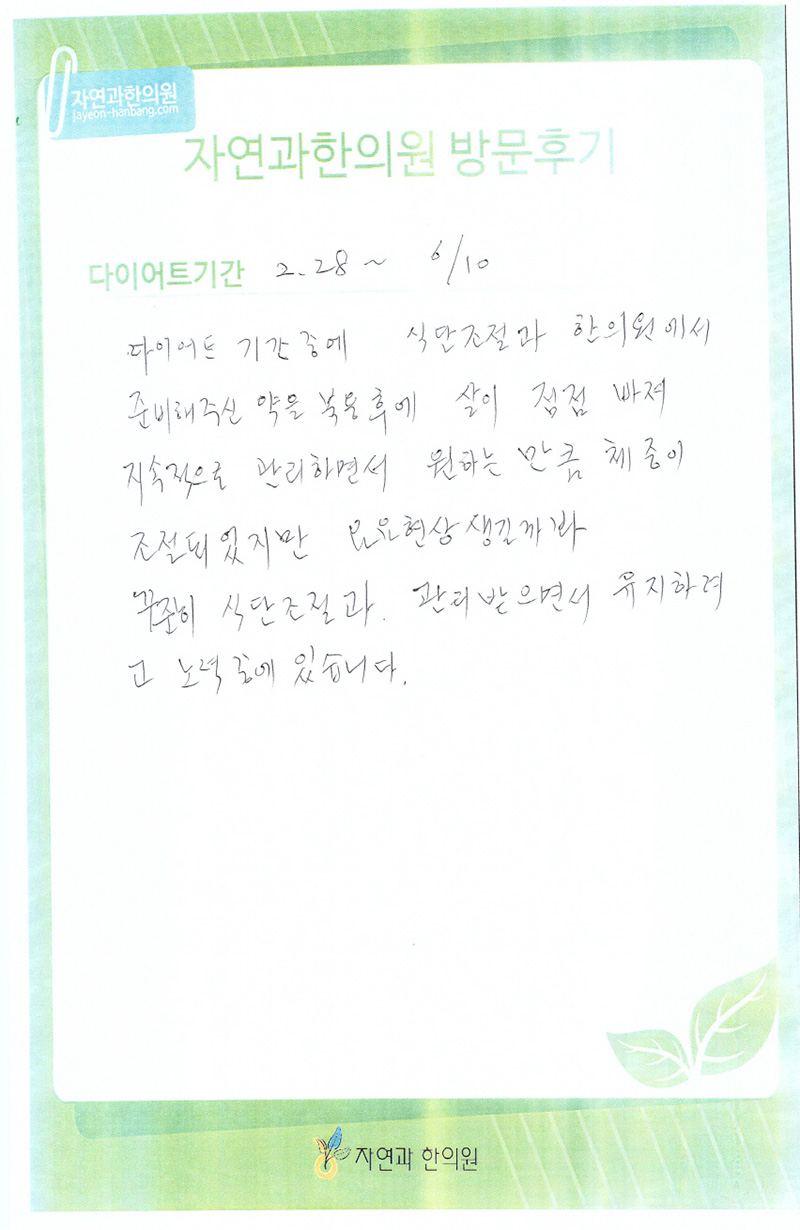 자연과한의원
jayeon-hanbang.com
자연과한의원 방문후기
다이어트기간 2.28~ 6/10
다이어트 기간중에 식단조절과 한의원에서
준비해주신 약을 복용후에 살이 점점 빠져
지속적으로 관리하면서 원하는 만큼 체중이
조절되었지만 요요현상생길까봐
꾸준히 식단조절과. 관리받으면서 유지하려
고 노력중에 있습니다.
자연과 한의원